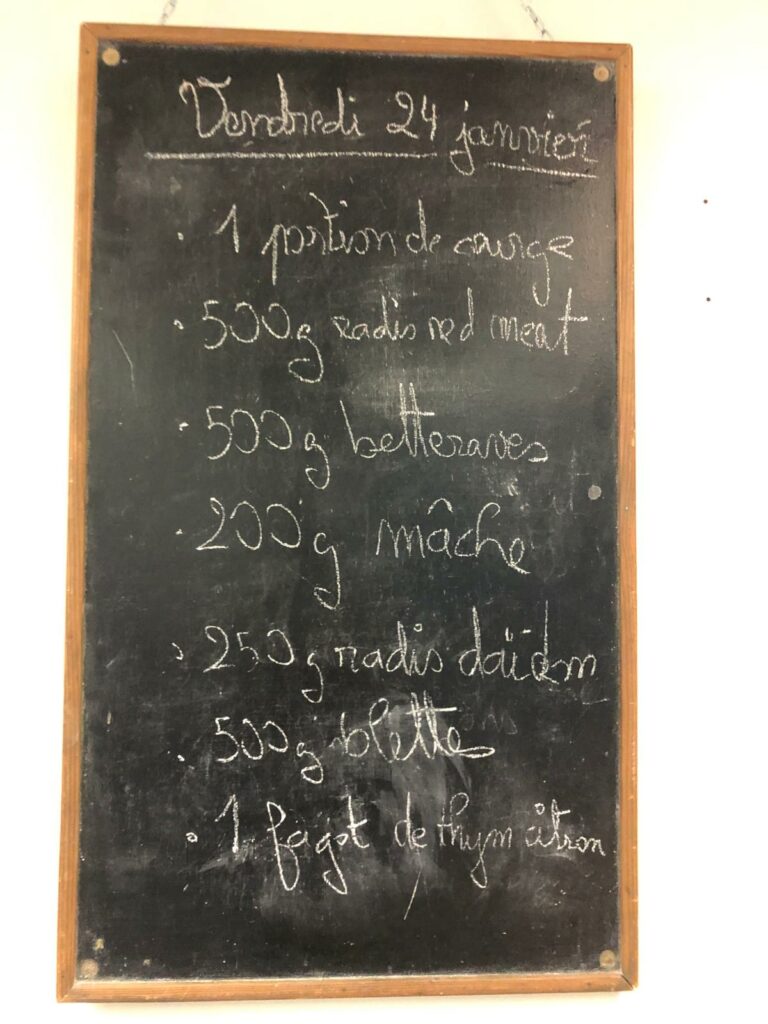 Vendredi 24 janvier
• 1 portion de courge
• 500g radis red meat
• 500g betteraves
• 200g mâche
• 250g radis daïkon
• 500g blettes
• 1 fagot de thym citron